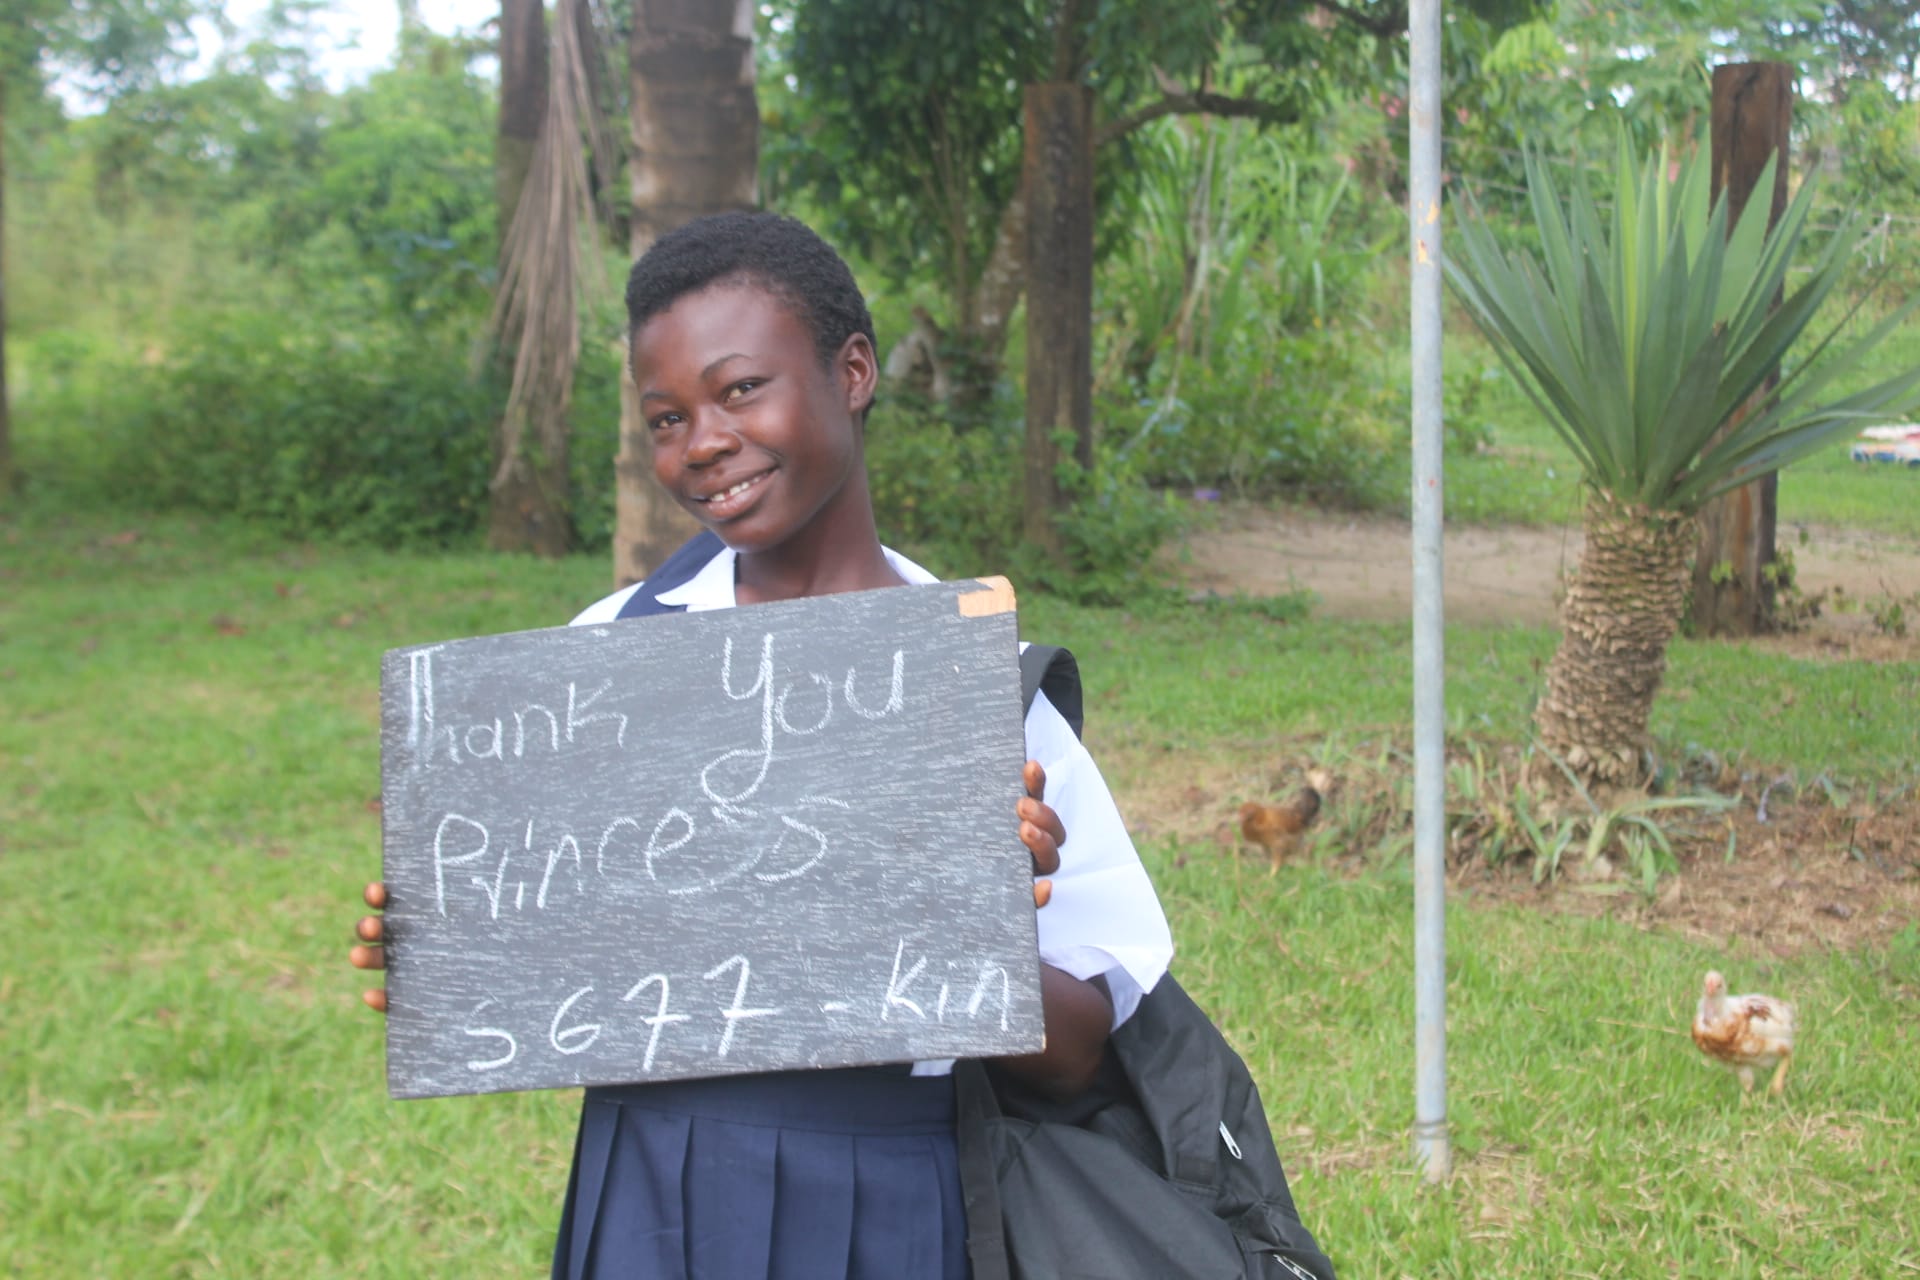 Thank you
Princess
S677-Kin